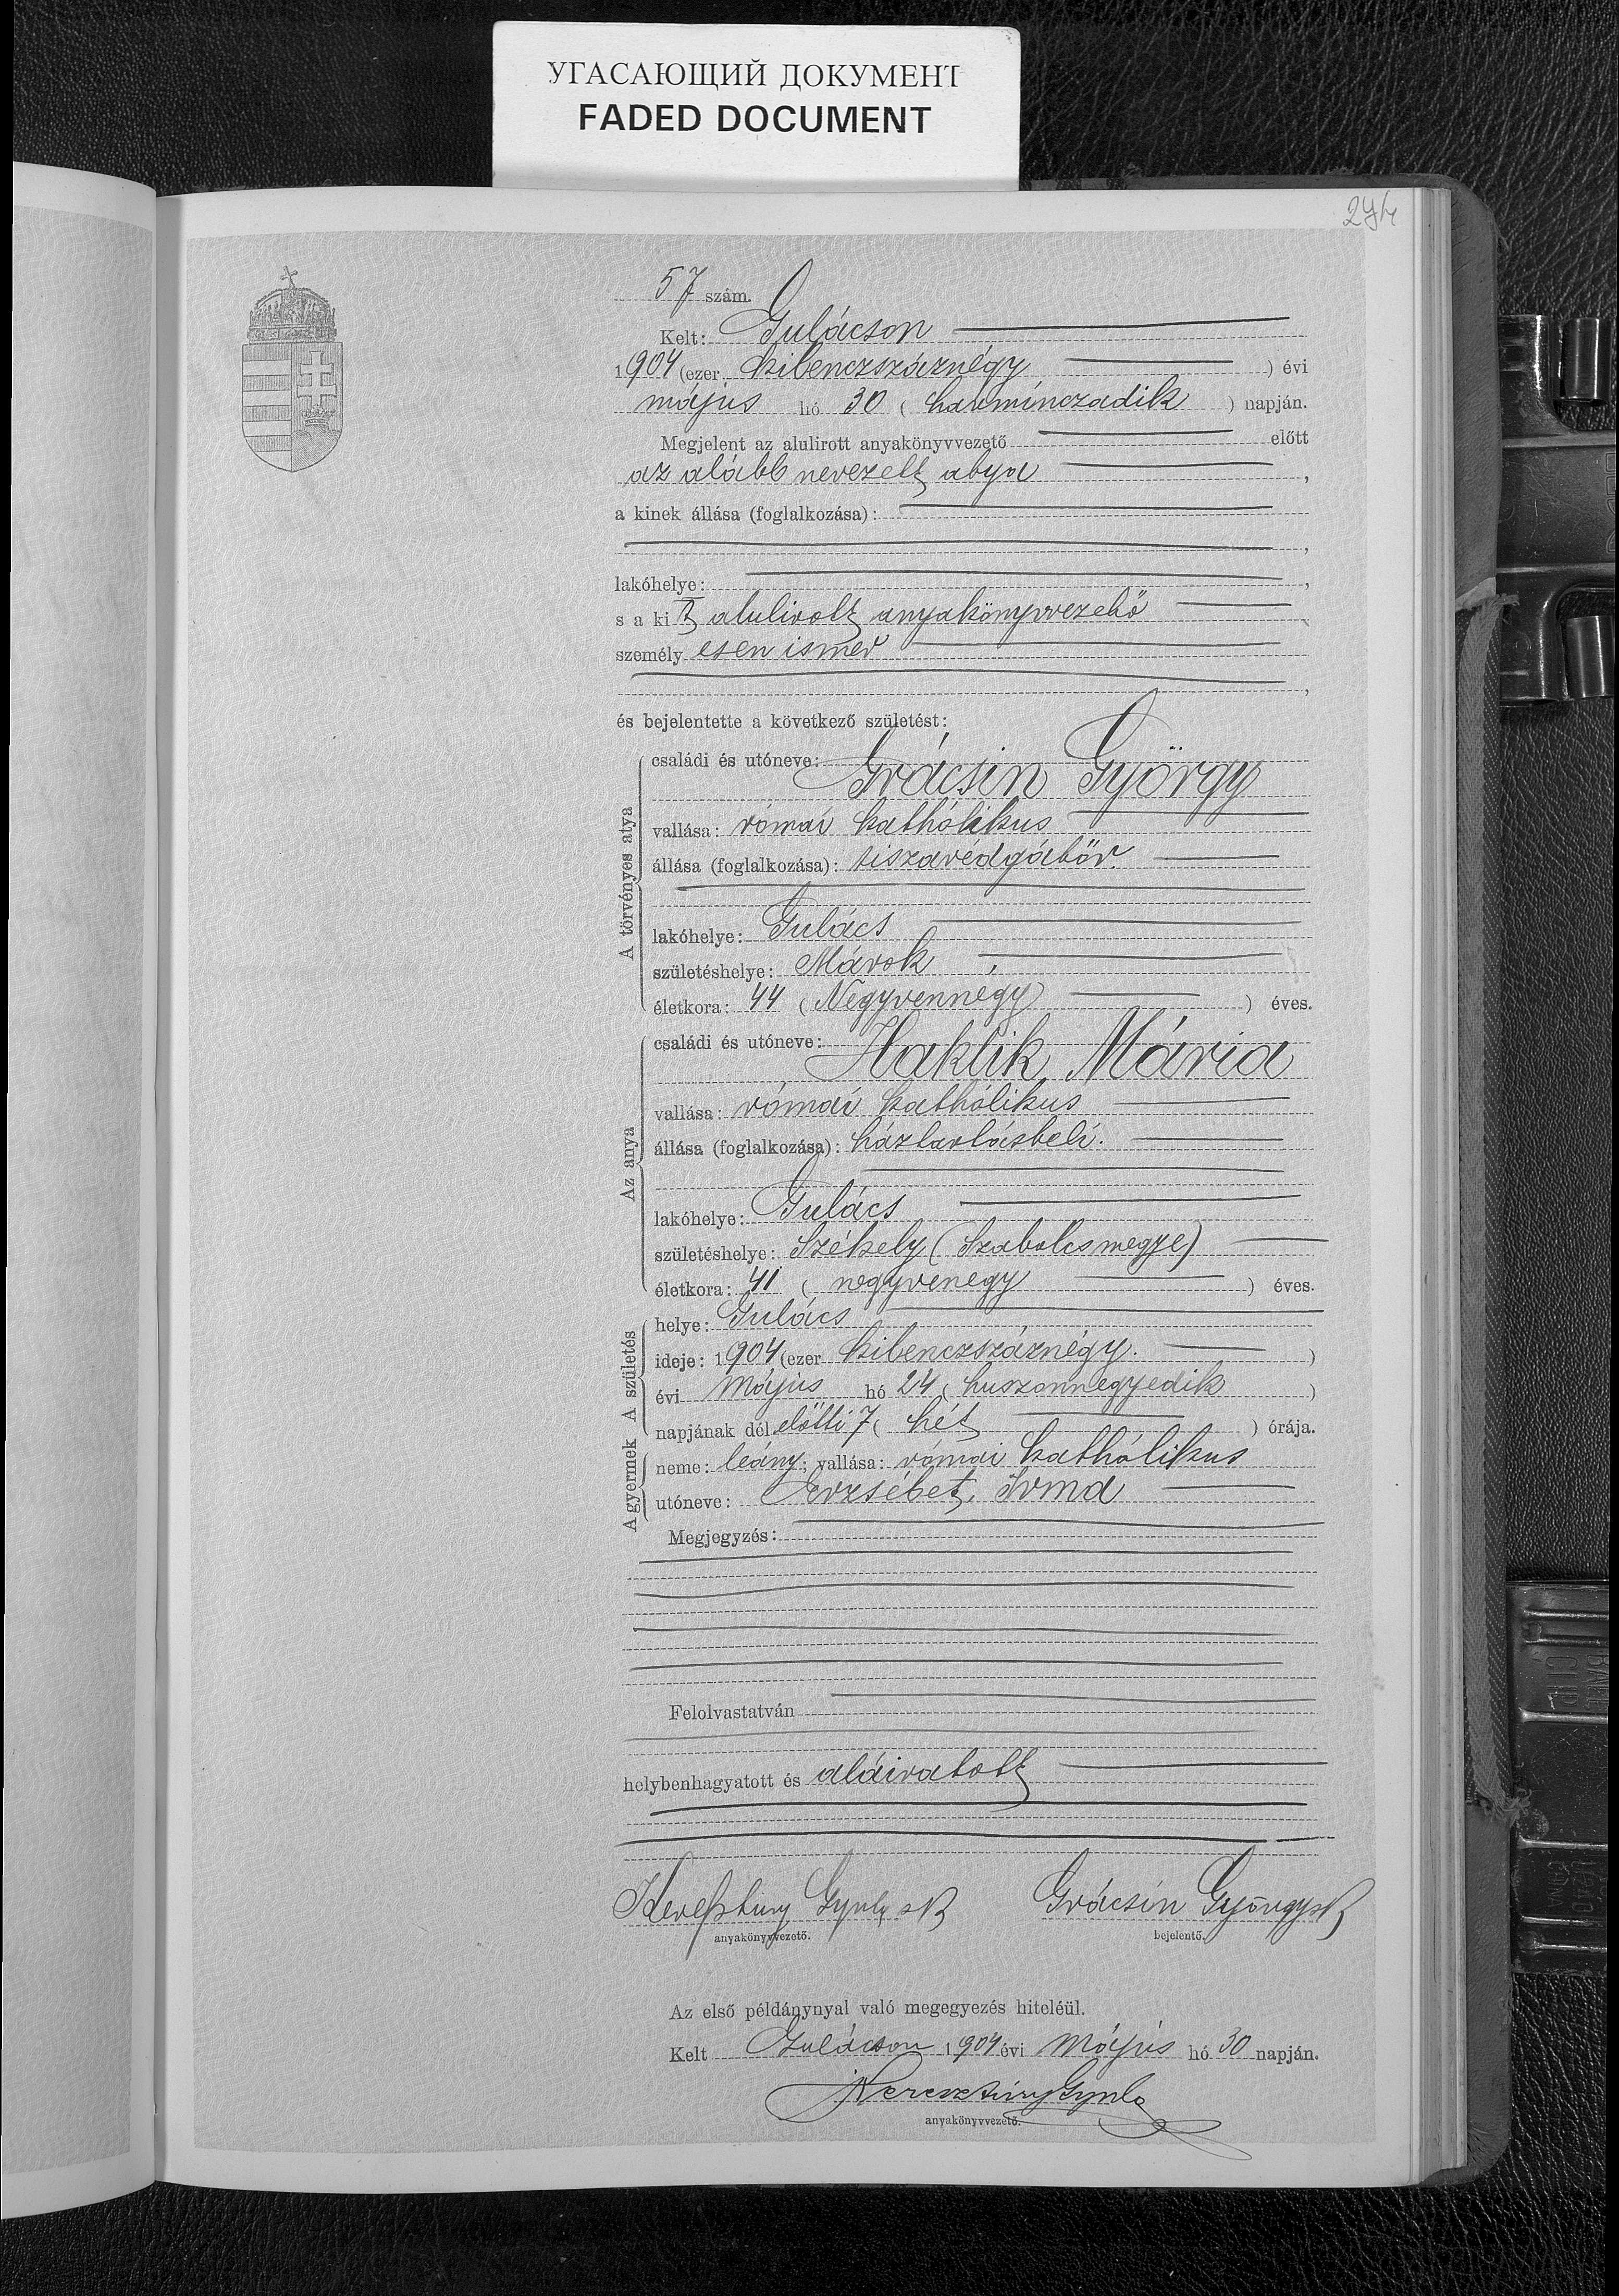 УГАСАЮЩИЙ ДОКУМЕНТ
FADED DOCUMENT
274
57 szám.
Kelt: Gulácson
1904 (ezer kilenczszáznégy ) évi
május hó 30 ( harminczadik ) napján.
Megjelent az alulirott anyakönyvvezető előtt
az alább nevezett atya ,
a kinek állása (foglalkozása):
,
lakóhelye: ,
s a kit alulirott anyakönyvvezető
személy esen ismer
,
és bejelentette a következő születést:
A törvényes atya
családi és utóneve:
Grácsin György
vallása: római katholikus
állása (foglalkozása): tiszavédgátőr
lakóhelye: Gulács
születéshelye: Márok
életkora: 44 (Negyvennégy ) éves.
Az anya
családi és utóneve:
Haklik Mária
vallása: római katholikus
állása (foglalkozása): háztartásbeli.
lakóhelye: Gulács
születéshelye: Székely (Szabolcsmegye)
életkora: 41 ( negyvenegy ) éves.
A születés
helye: Gulács
ideje: 1904 (ezer kilenczszáznégy. )
évi Május hó 24 ( huszonnegyedik )
napjának dél előtti 7 ( hét ) órája.
A gyermek
neme: leány; vallása: római katholikus
utóneve: Erzsébet, Irma
Megjegyzés:
Felolvastatván
helybenhagyatott és aláiratott
Keresztury Gyula sk Grácsin György sk
anyakönyvvezető. bejelentő.
Az első példánynyal való megegyezés hiteléül.
Kelt Gulácson 1904 évi Május hó 30 napján.
Keresztury Gyula
anyakönyvvezető.